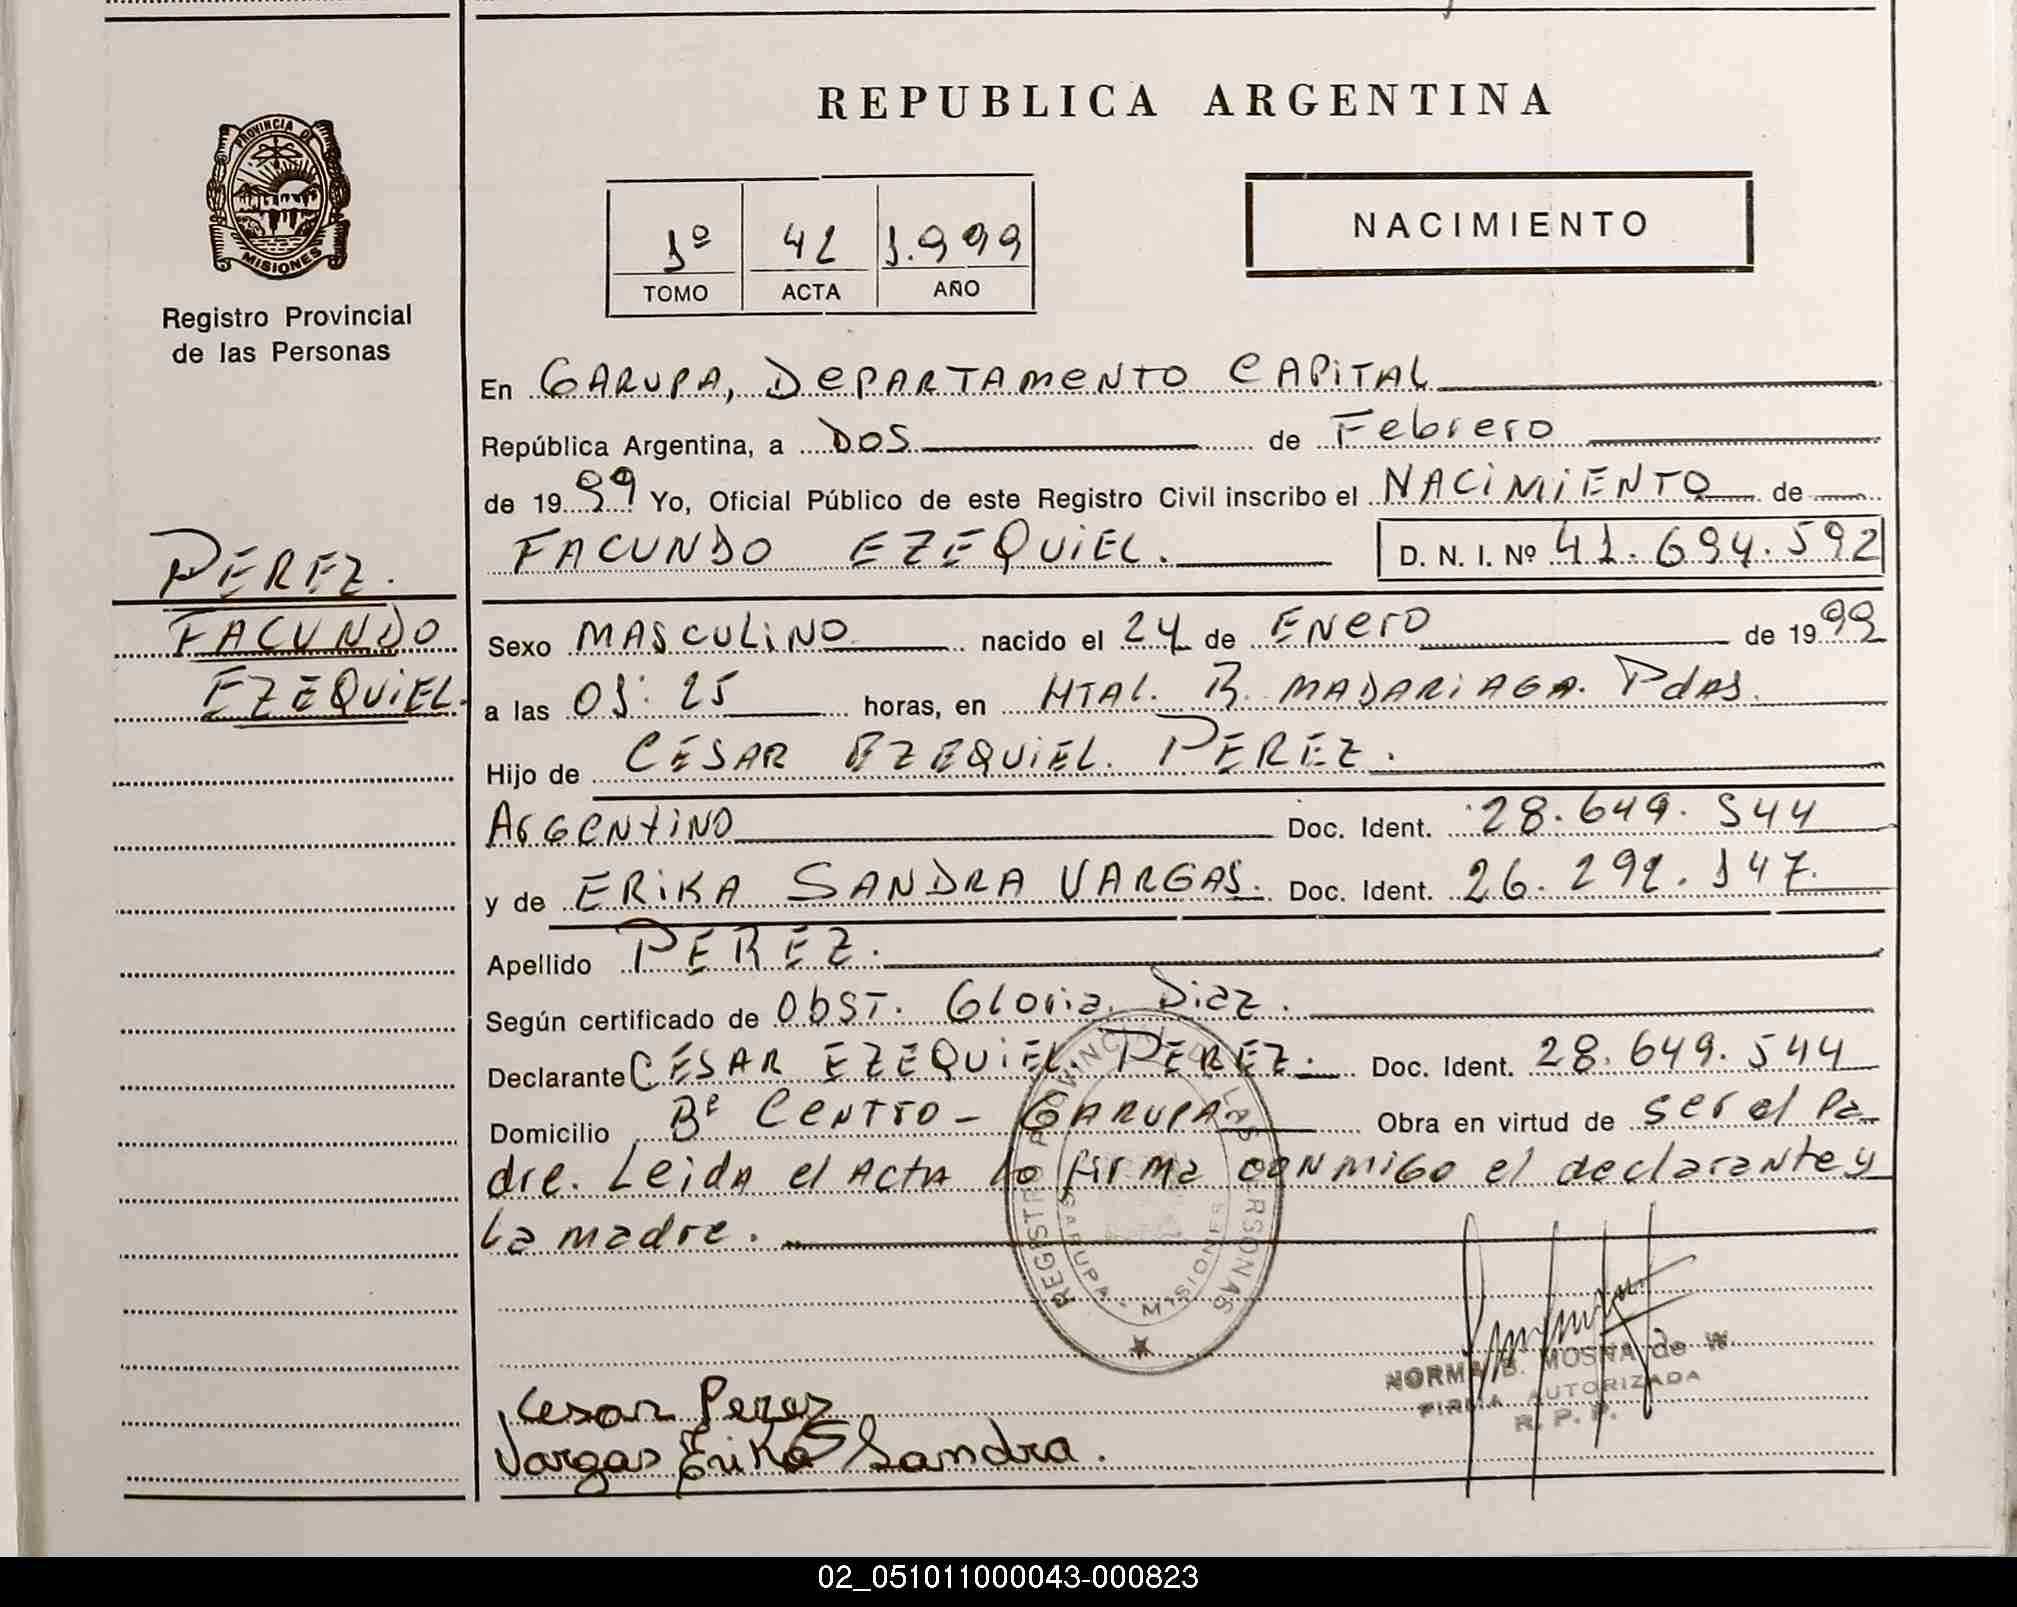 REPUBLICA ARGENTINA
PROVINCIA DE
MISIONES
Registro Provincial
de las Personas
1º 42 1.999
TOMO ACTA AÑO
NACIMIENTO
En GARUPA, DEPARTAMENTO CAPITAL
República Argentina, a DOS de Febrero
de 1999 Yo, Oficial Público de este Registro Civil inscribo el NACIMIENTO de
FACUNDO EZEQUIEL. D. N. I. Nº 41.694.592
PEREZ.
FACUNDO
EZEQUIEL.
Sexo MASCULINO nacido el 24 de ENERO de 1999
a las horas, en HTAL. R. MADARIAGA. Pdas.
Hijo de CESAR EZEQUIEL. PEREZ.
ARGENTINO Doc. Ident. 28.649.544
y de ERIKA SANDRA VARGAS. Doc. Ident.
Apellido PEREZ.
Según certificado de Obst. Gloria Diaz.
Declarante CESAR EZEQUIEL PEREZ. Doc. Ident. 28.649.544
Domicilio Bº Centro - GARUPA Obra en virtud de ser el Pa
dre. Leida el Acta la firma conmigo el declarante y
La madre.
REGISTRO PROVINCIAL DE LAS PERSONAS
GARUPA - MISIONES
NORMA B. MOSNA de W
FIRMA AUTORIZADA
R. P. P.
Cesar Perez
Vargas Erika Sandra.
02_051011000043-000823